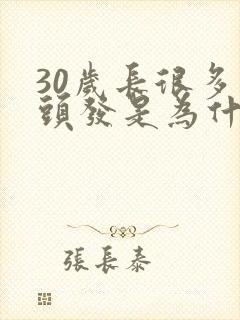 30歲長很多
頭發是為什
張長泰